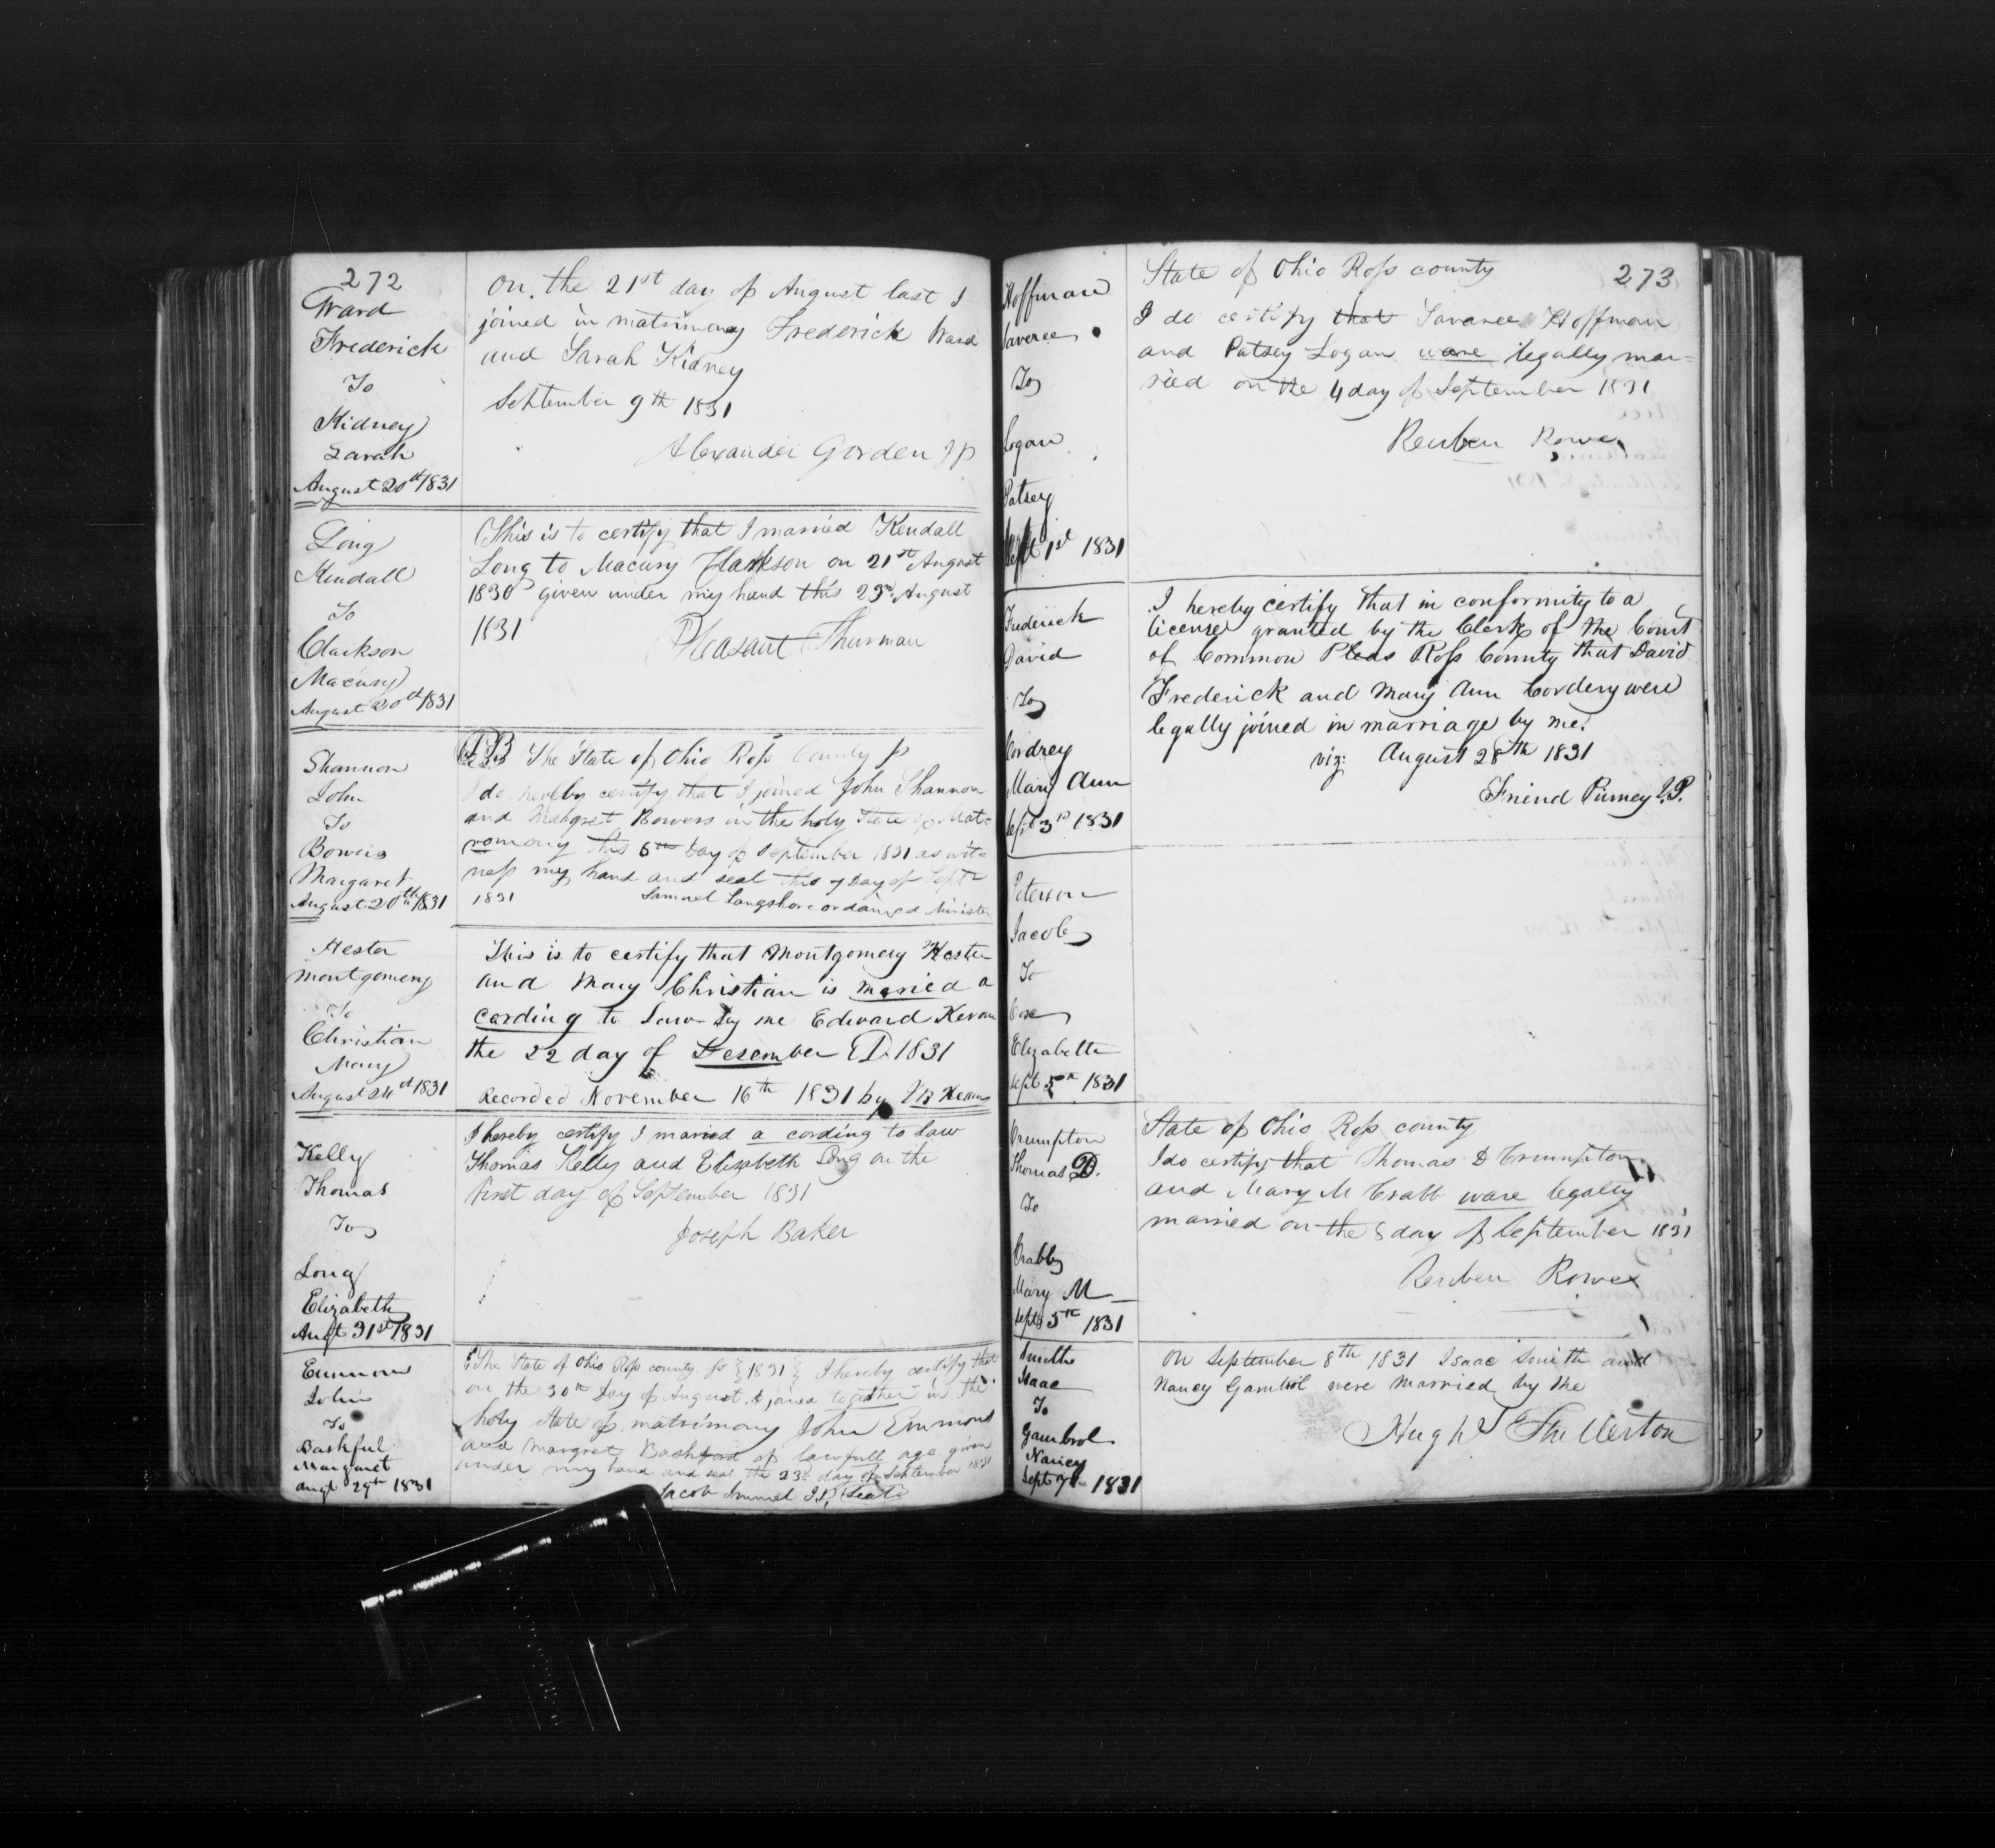 272
Ward
Frederick
To
Kidney
Sarah
August 20th 1831
On the 21st day of August last I
joined in matrimony Frederick Ward
and Sarah Kidney
September 9th 1831
Alexander Gorden JP
Long
Kendall
To
Clarkson
Macury
August 20th 1831
This is to certify that I married Kendall
Long to Macury Clarkson on 21st August
1830 given under my hand this 23rd August
1831
Pleasant Thurman
Shannon
John
To
Bowers
Margaret
August 20th 1831
The State of Ohio Ross County ss
I do hereby certify that I joined John Shannon
and Margret Bowers in the holy State of Mat-
romony this 6th Day of September 1831 as wit-
ness my hand and seal this 7 Day of Sept
1831
Samuel Longshore ordained Minister
Hester
Montgomery
To
Christian
Mary
August 24th 1831
This is to certify that Montgomery Hester
and Mary Christian is maried a
cording to Law by me Edward Kevan
the 22 day of Desember AD. 1831
Recorded November 16th 1831 by
Kelly
Thomas
To
Long
Elizabeth
Augt 31st 1831
I hereby certify I maried a cording to Law
Thomas Kelly and Elizabeth Long on the
first day of September 1831
Joseph Baker
Emmons
John
To
Bashful
Margaret
Augt 29th 1831
The State of Ohio Ross county ss {1831} I hereby certify that
on the 30th Day of August I joined together in the
holy State of matrimony John Emmons
and Margret Bashford of lawfull age given
under my hand and seal the 23d day of September 1831
Jacob Immel J.P. Seal
273
Hoffman
Saveree
To
Logan
Patsey
Sept 1st 1831
State of Ohio Ross county
I do certify that Savaree Hoffman
and Patsey Logan ware legally mar-
ried on the 4 day of September 1831
Reuben Rowe
Frederick
David
To
Cordrey
Mary Ann
Sept 3rd 1831
I hereby certify that in conformity to a
license granted by the Clerk of the Court
of Common Pleas Ross County that David
Frederick and Mary Ann Cordery were
legally joined in marriage by me.
viz: August 28th 1831
Friend Purney J.P.
Peterson
Jacob
To
Cox
Elizabeth
Sept 5th 1831
Crumpton
Thomas D.
To
Crabb
Mary M
Sept 5th 1831
State of Ohio Ross county
I do certify that Thomas D Crumpton
and Mary M Crabb ware legally
married on the 8 day of September 1831
Reuben Rowe
Smith
Isaac
To
Gambrol
Nancy
Sept 7th 1831
On September 8th 1831 Isaac Smith and
Nancy Gambrol were married by the
Hugh S Fullerton